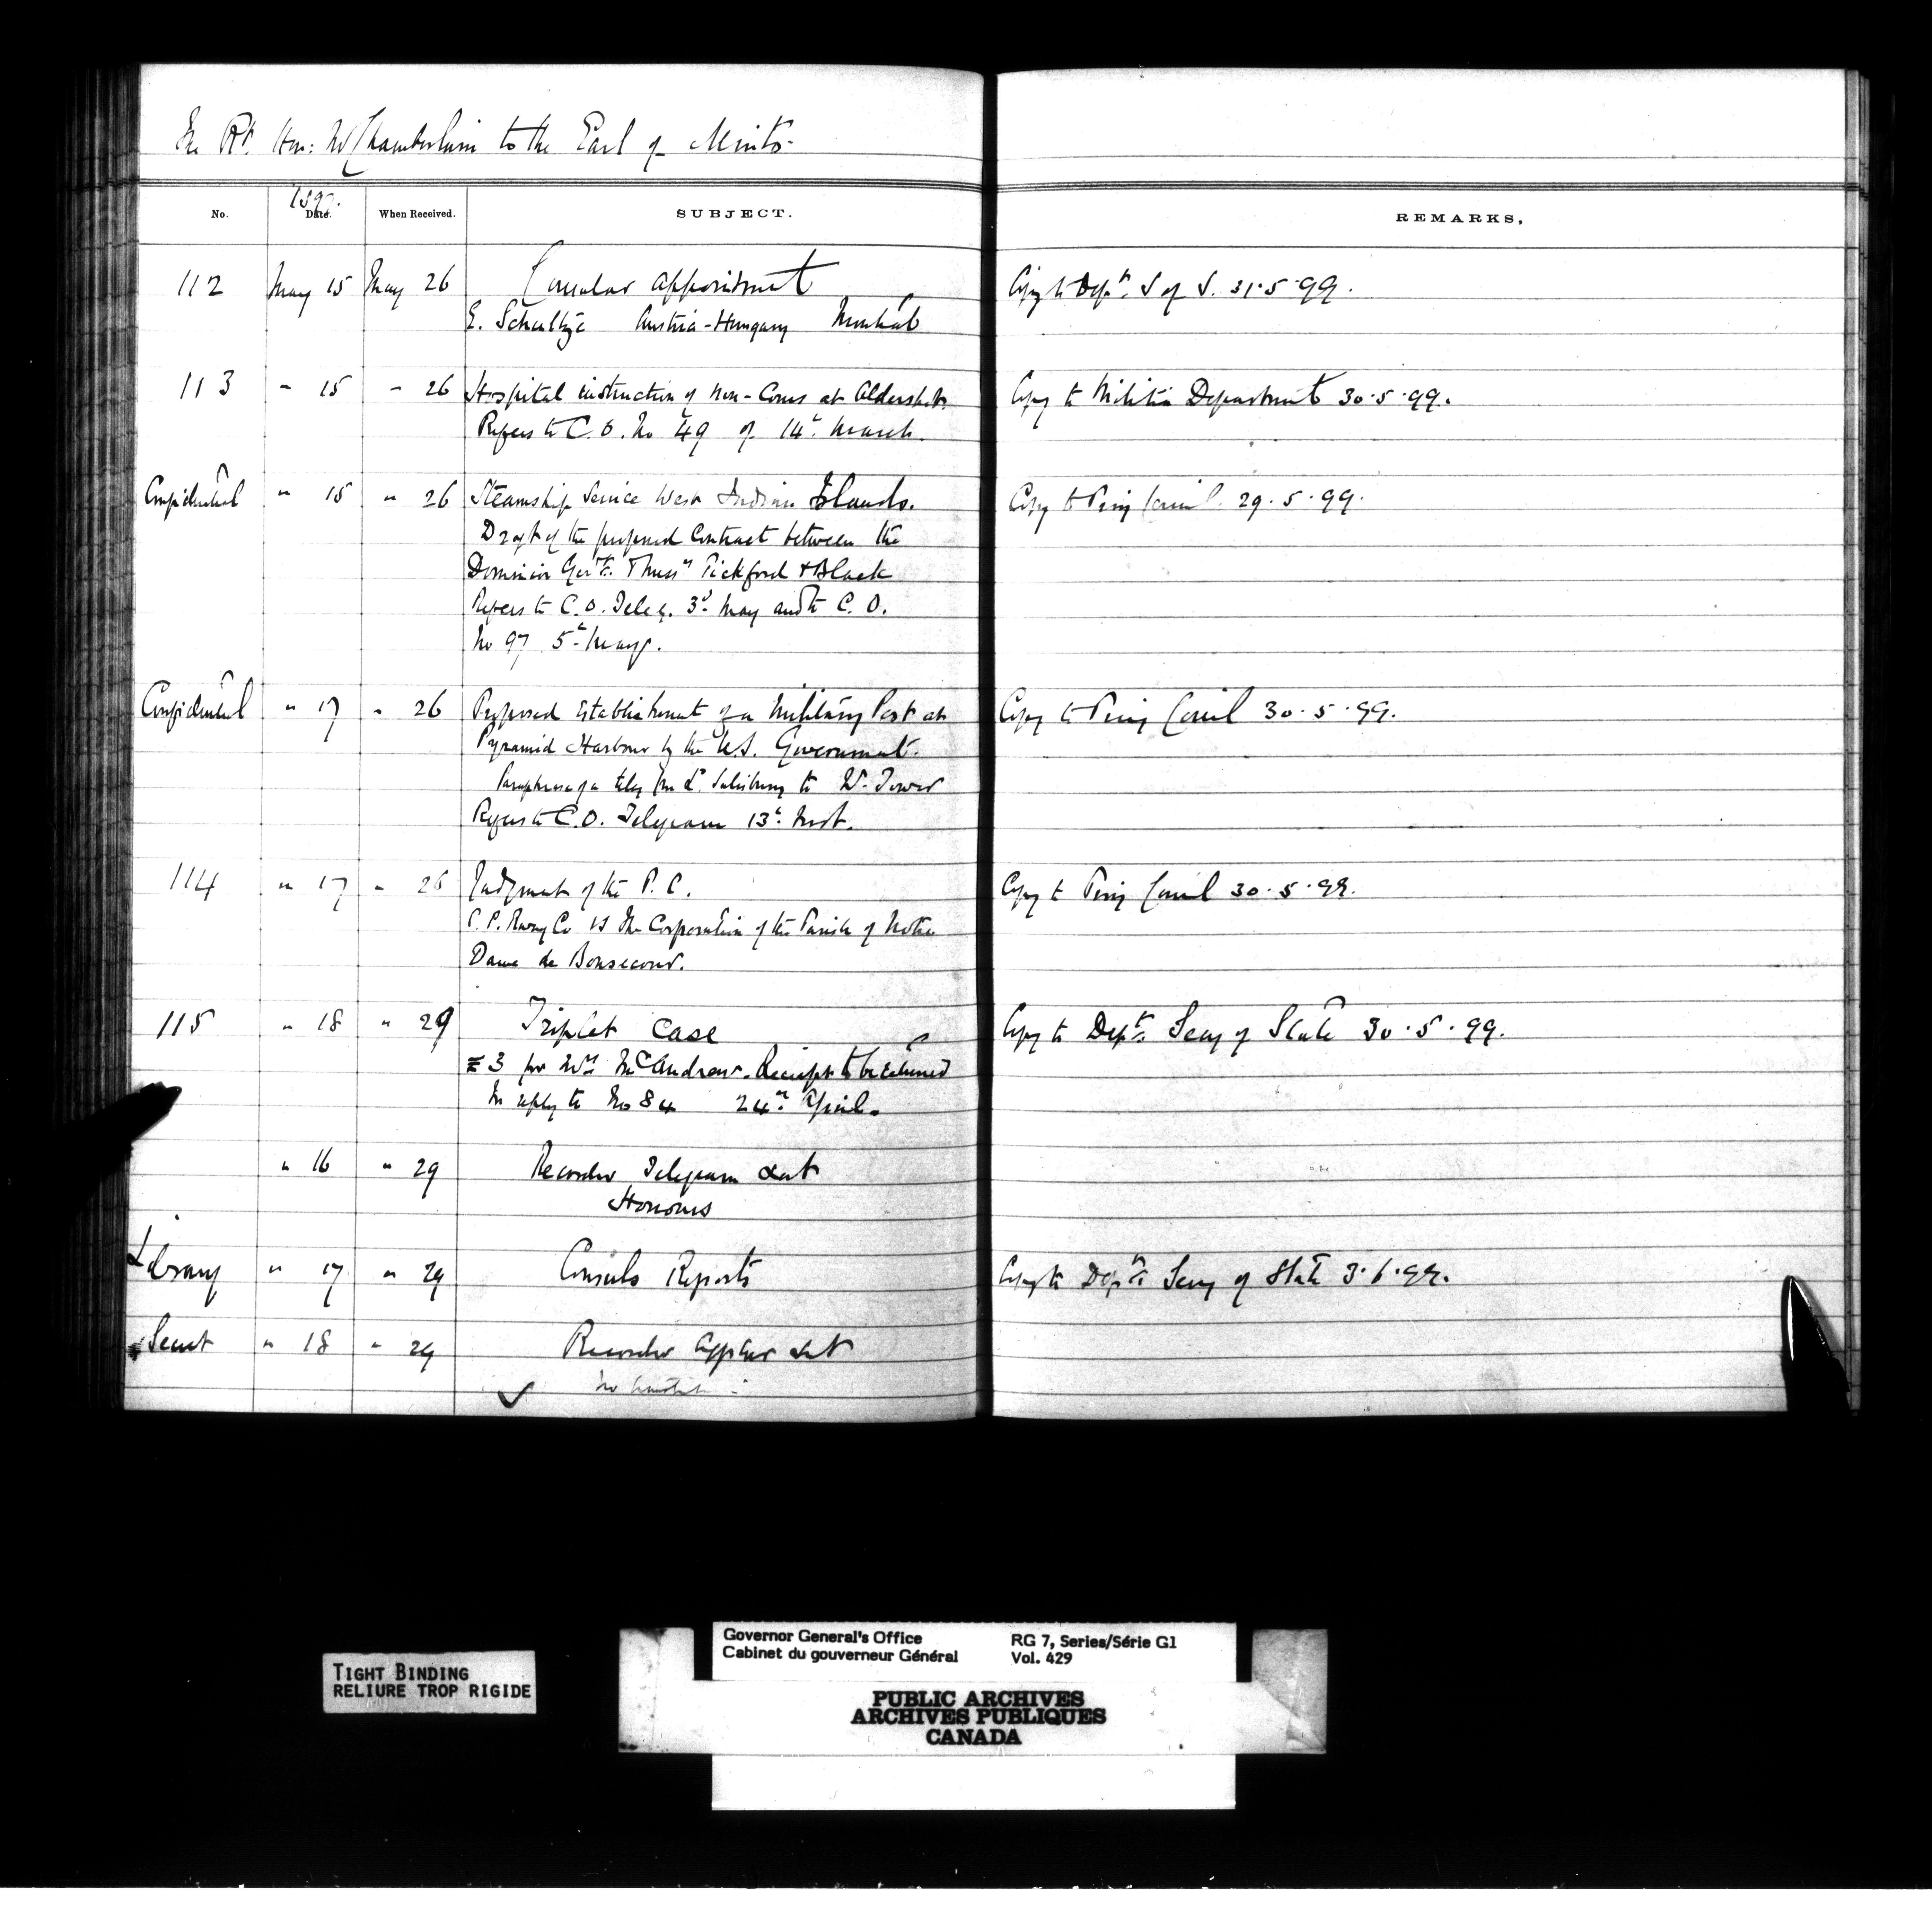 The Rt. Hon: Mr Chamberlain to the Earl of Minto.
1899.
No. Date. When Received. SUBJECT. REMARKS.
112 May 15 May 26 Consular Appointment Copy to Dept. S of S. 31.5.99.
E. Schultze Austria-Hungary Montreal
113 " 15 " 26 Hospital instruction of Non-Coms at Aldershot. Copy to Militia Department 30.5.99.
Refers to C.O. No 49 of 14th March.
Confidential " 15 " 26 Steamship Service West Indian Islands. Copy to Privy Council 29.5.99.
Draft of the proposed Contract between the
Dominion Govt. & Messrs Pickford & Black
Refers to C.O. Teleg. 3d May and to C.O.
No 97 5th May.
Confidential " 17 " 26 Proposed Establishment of a Military Post at Copy to Privy Council 30.5.99.
Pyramid Harbour by the U.S. Government.
Paraphrase of a teleg from Ld. Salisbury to Mr. Tower
Refers to C.O. Telegram 13th Inst.
114 " 17 " 26 Judgment of the P.C. Copy to Privy Council 30.5.99.
C.P. Rway Co vs The Corporation of the Parish of Notre
Dame de Bonsecour.
115 " 18 " 29 Triplet Case Copy to Dept. Secy of State 30.5.99.
£3 for Mrs McAndrew. Receipt to be returned
In reply to No 84 24th April.
" 16 " 29 Recorder Telegram sent
Honours
Library " 17 " 29 Consuls Reports Copy to Dept. Secy of State 3.6.99.
Secret " 18 " 29 Recorder Cypher sent
TIGHT BINDING
RELIURE TROP RIGIDE
Governor General's Office RG 7, Series/Série G1
Cabinet du gouverneur Général Vol. 429
PUBLIC ARCHIVES
ARCHIVES PUBLIQUES
CANADA